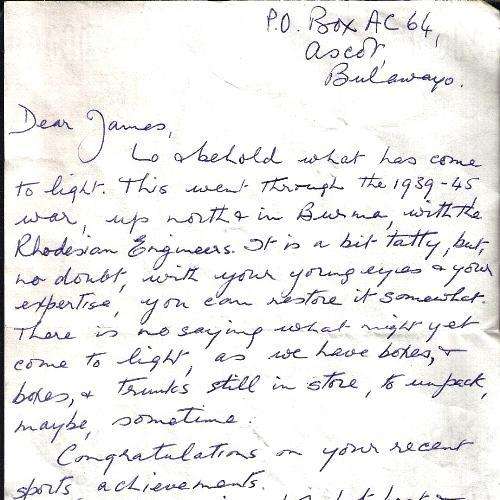 P.O. Box AC 64,
Ascot,
Bulawayo.
Dear James,
Lo & behold what has come
to light. This went through the 1939-45
war, up north & in Burma, with the
Rhodesian Engineers. It is a bit tatty, but,
no doubt, with your young eyes & your
expertise, you can restore it somewhat.
There is no saying what might yet
come to light, as we have boxes, &
boxes, & trunks still in store, to unpack,
maybe, sometime.
Congratulations on your recent
sports achievements.